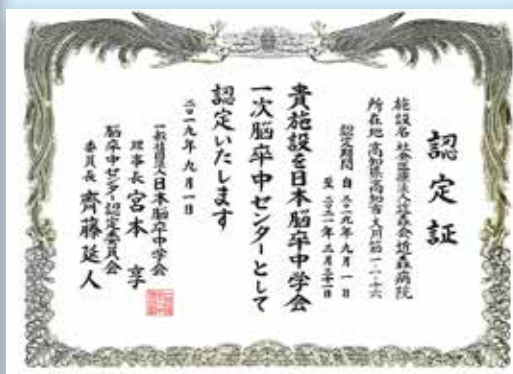 認定証
施設名 社会医療法人近森会近森病院
所在地 高知県高知市大川筋一-一-十六
認定期間 自 二〇一九年九月一日
至 二〇二一年三月三十一日
貴施設を日本脳卒中学会
一次脳卒中センターとして
認定いたします
二〇一九年九月一日
一般社団法人日本脳卒中学会
理事長 宮本 享
脳卒中センター認定委員会
委員長 齊藤延人